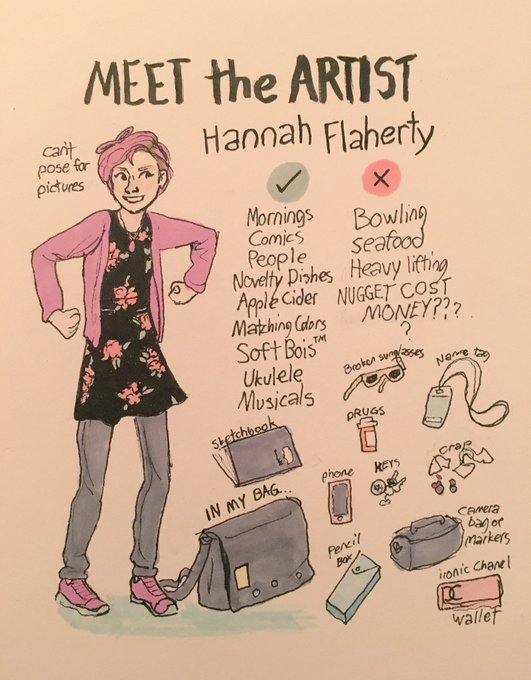 MEET the ARTIST
Hannah Flaherty
can't
pose for
pictures
Mornings
Comics
People
Novelty Dishes
Apple Cider
Matching Colors
Soft Bois™
Ukulele
Musicals
Bowling
seafood
Heavy lifting
NUGGET COST
MONEY???
?
Broken sunglasses
Name tag
DRUGS
sketchbook
phone
KEYS
crap
IN MY BAG...
Camera
bag of
markers
Pencil
Box
ironic Chanel
wallet